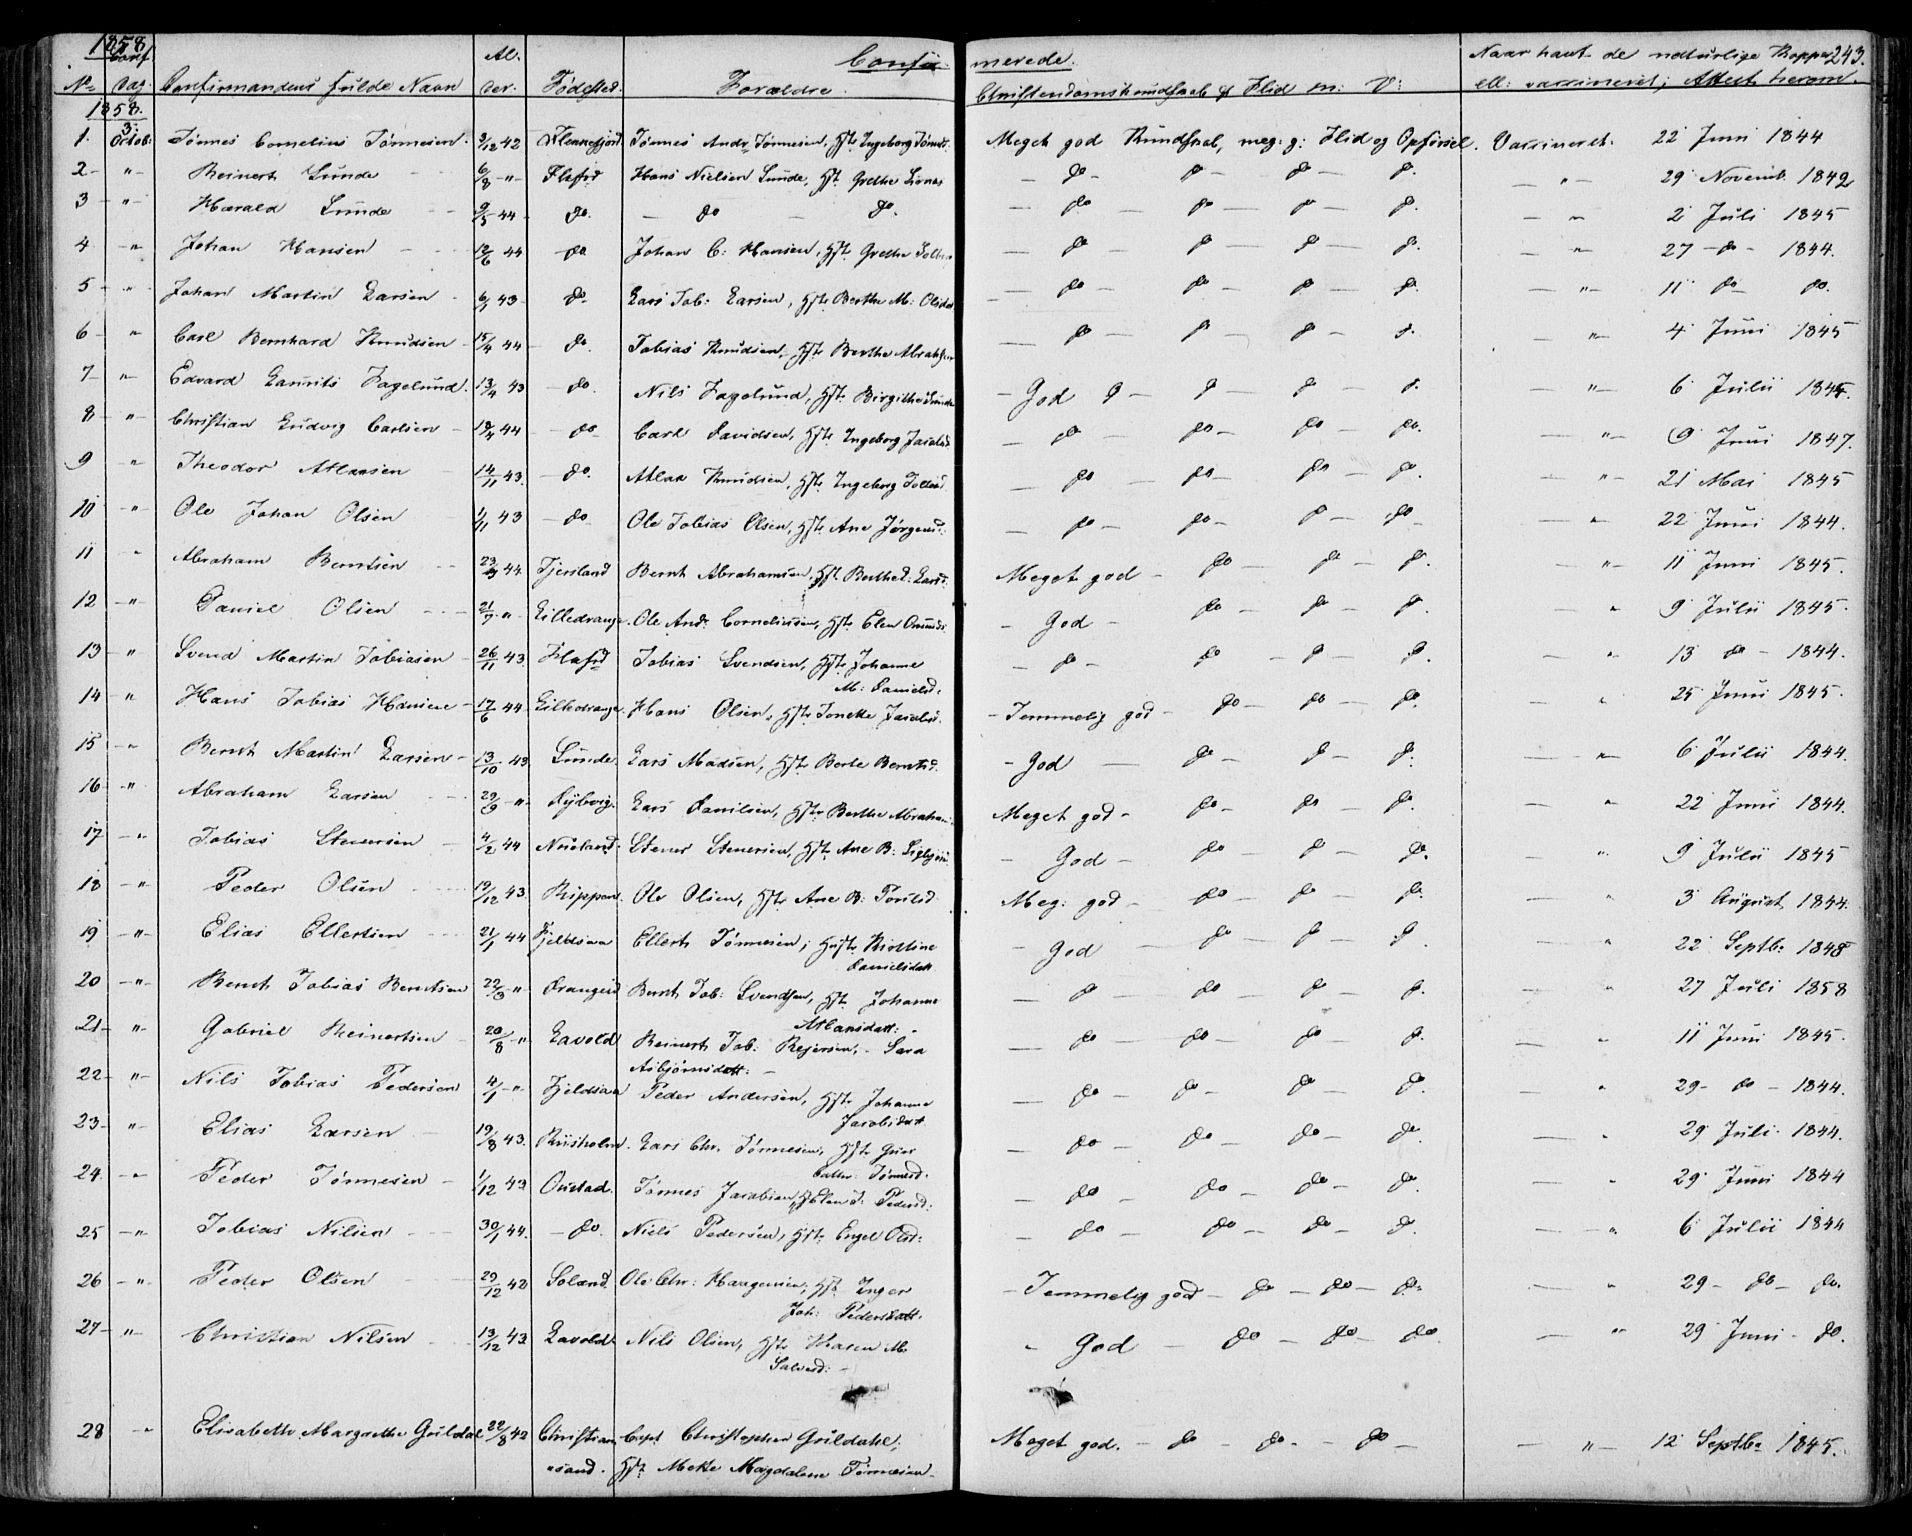 1858. Confirmerede. Naar havt de naturlige Kopper 243.
No Conf. Dag. Confirmandens fulde Navn Alder. Fødested. Forældre. Christendomskundskab & Flid m: V: ell: vaccineret; Attest herom.
1858.
1. 3: Octob: Tønnes Cornelius Tønnesen 2/12 42 Flekkefjord Tønnes Andr. Tønnesen, Hstr Ingeborg Meget god Kundskab, meg: g: Flid og Opførsel. Vaccineret. 22 Juni 1844
2 - " - Reinert Sunde 6/8 - " - Flefrd Hans Nielsen Sunde, Hst. Grethe - do - do - do - do. - " - 29 Novemb. 1842
3 - " - Harald Sunde 9/5 44 - do. - do - do. - do - do - do - do. - " - 2 Juli 1845
4 - " - Johan Hansen 12/6 44 - do Johan C: Hansen, Hst. Grethe - do - do - do - do. - " - 27 - do - 1844.
5 - " - Johan Martin Larsen 6/1 43 - do - Lars Tob: Larsen, Hstr Berthe M: - do - do - do - do. - " - 11 do - do.
6 - " - Carl Bernhard Knudsen 15/4 44 - do. Tobias Knudsen, Hstr Berthe - do - do - do - do. - " - 4 Juni 1845
7 - " - Edvard Laurits Fagelund. 13/4 43 - do. Nils Fagelund, Hst. Birgithe Sunde - God do - do - do - do. - " - 6 Julii 1845.
8 - " - Christian Ludvig Carlsen 12/4 44 - do - Carl Davidsen, Hstr Ingeborg - do - do - do - do. - " - 9 Juni 1847.
9 - " - Theodor Atlaksen 14/11 43. - do. Atlak Knudsen, Hst. Ingeborg - do - do - do - do. - " - 21 Mai 1845
10 " Ole Johan Olsen 1/11 43 - do - Ole Tobias Olsen, Hst. Ane - do - do - do - do - " - 22 Juni 1844.
11 " Abraham Berntsen 23/3 44. Tjersland Bernt Abrahamsen, Hst. Berthe Meget god - do - do - do. - " - 11 Juni 1845.
12 - " - Daniel Olsen 21/7 - " - Lilledrange. Ole And: Corneliussen, Hst. Elen - God - do - do - do. " 9 Julii 1845.
13 - " Svend Martin Tobiasen 26/11 43. Flefrd Tobias Svendsen, Hst. Johanne - do - do - do - do. " 13 do - 1844.
M: Danielsd:
14 " Hans Tobias Hansen 17/6 44. Lilledrange. Hans Olsen, Hstr Tonette Jacobsd. - Temmelig god - do - do - do. " 25 Juni 1845.
15 - " Bernt Martin Larsen 13/10 43 Sunde. Lars Madsen, Hstr Berte Berntsd. - God - do - do - do. - " - 6 Julii 1844.
16 - " Abraham Larsen 29/9 - " - Dybvig. Lars Danielsen, Hstr Berthe Meget god - do - do - do. " 22 Juni 1844.
17 - " Tobias Stenersen 4/2 44 Nuland. Stener Stenersen, Hst. Ane B: - God - do - do - do. " 9 Julii 1845
18 - " - Peder Olsen 19/12 43. Rippen. Ole Olsen, Hstr Ane B: Meg: god - do - do - do. " 3 August 1844.
19 - " - Elias Ellertsen 21/1 44 Fjeldsaa Ellert Tønnesen, Hustr Kirstine - God - do - do - do. " 22 Septb: 1848
Danielsdatt
20 - " - Bernt Tobias Berntsen 22/3 - " Drangeid Bernt Tob: Svendsen, Hst. Johanne - do - do - do - do. " 27 Juli 1858
Atlaksdatt:
21 - " - Gabriel Reinertsen 20/8 - " - Lavold Reinert Tob: Rejersen, - Sara - do - do - do - do. " 11 Juni 1845.
Asbjørnsdatt: -
22 - " - Nils Tobias Pedersen 4/1 - " Fjeldsaa Peder Andersen, Hst. Johanne - do - do - do - do. " 29 - do - 1844.
Jacobsdatt
23 - " - Elias Larsen 19/8 43. Lars Chr. Tønnesen, Hst. - do - do - do - do. " 29 Juli 1844.
Tønnesd.
24. - " Peder Tønnesen 1/12 43 Oustad. Tønnes Jacobsen, Hst Elen T: Pedersd: - do - do - do - do. " 29 Juni 1844
25 - " - Tobias Nilsen 30/1 44. - do. Niels Pedersen, Hst. Engel Olsd: - do - do - do - do. " 6 Julii 1844
26 - " - Peder Olsen 29/12 42 Soland. Ole Chr: Haagensen, Hst. Inger - Temmelig god - do - do - do. " 29 - do - do.
Joh: Pedersdatt.
27 - " - Christian Nilsen 13/12 43. Lavold Nils Olsen, Hstr Karen M. - God - do - do - do. " 29 Juni - do.
Salvesd: -
28 " Elisabeth Margrethe Guldal 22/8 42 Christian Capt Christopher Guldahl, Meget god. - do - do - do - - " - 12 Septb: 1845.
"sand. Hst. Mette Magdalene Tønnesen.